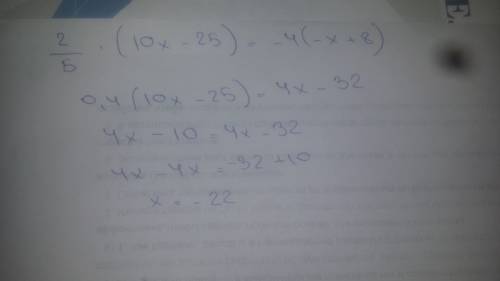 2/5 · (10x - 25) = -4(-x + 8)
0,4(10x - 25) = 4x - 32
4x - 10 = 4x - 32
4x - 4x = -32 + 10
x = -22